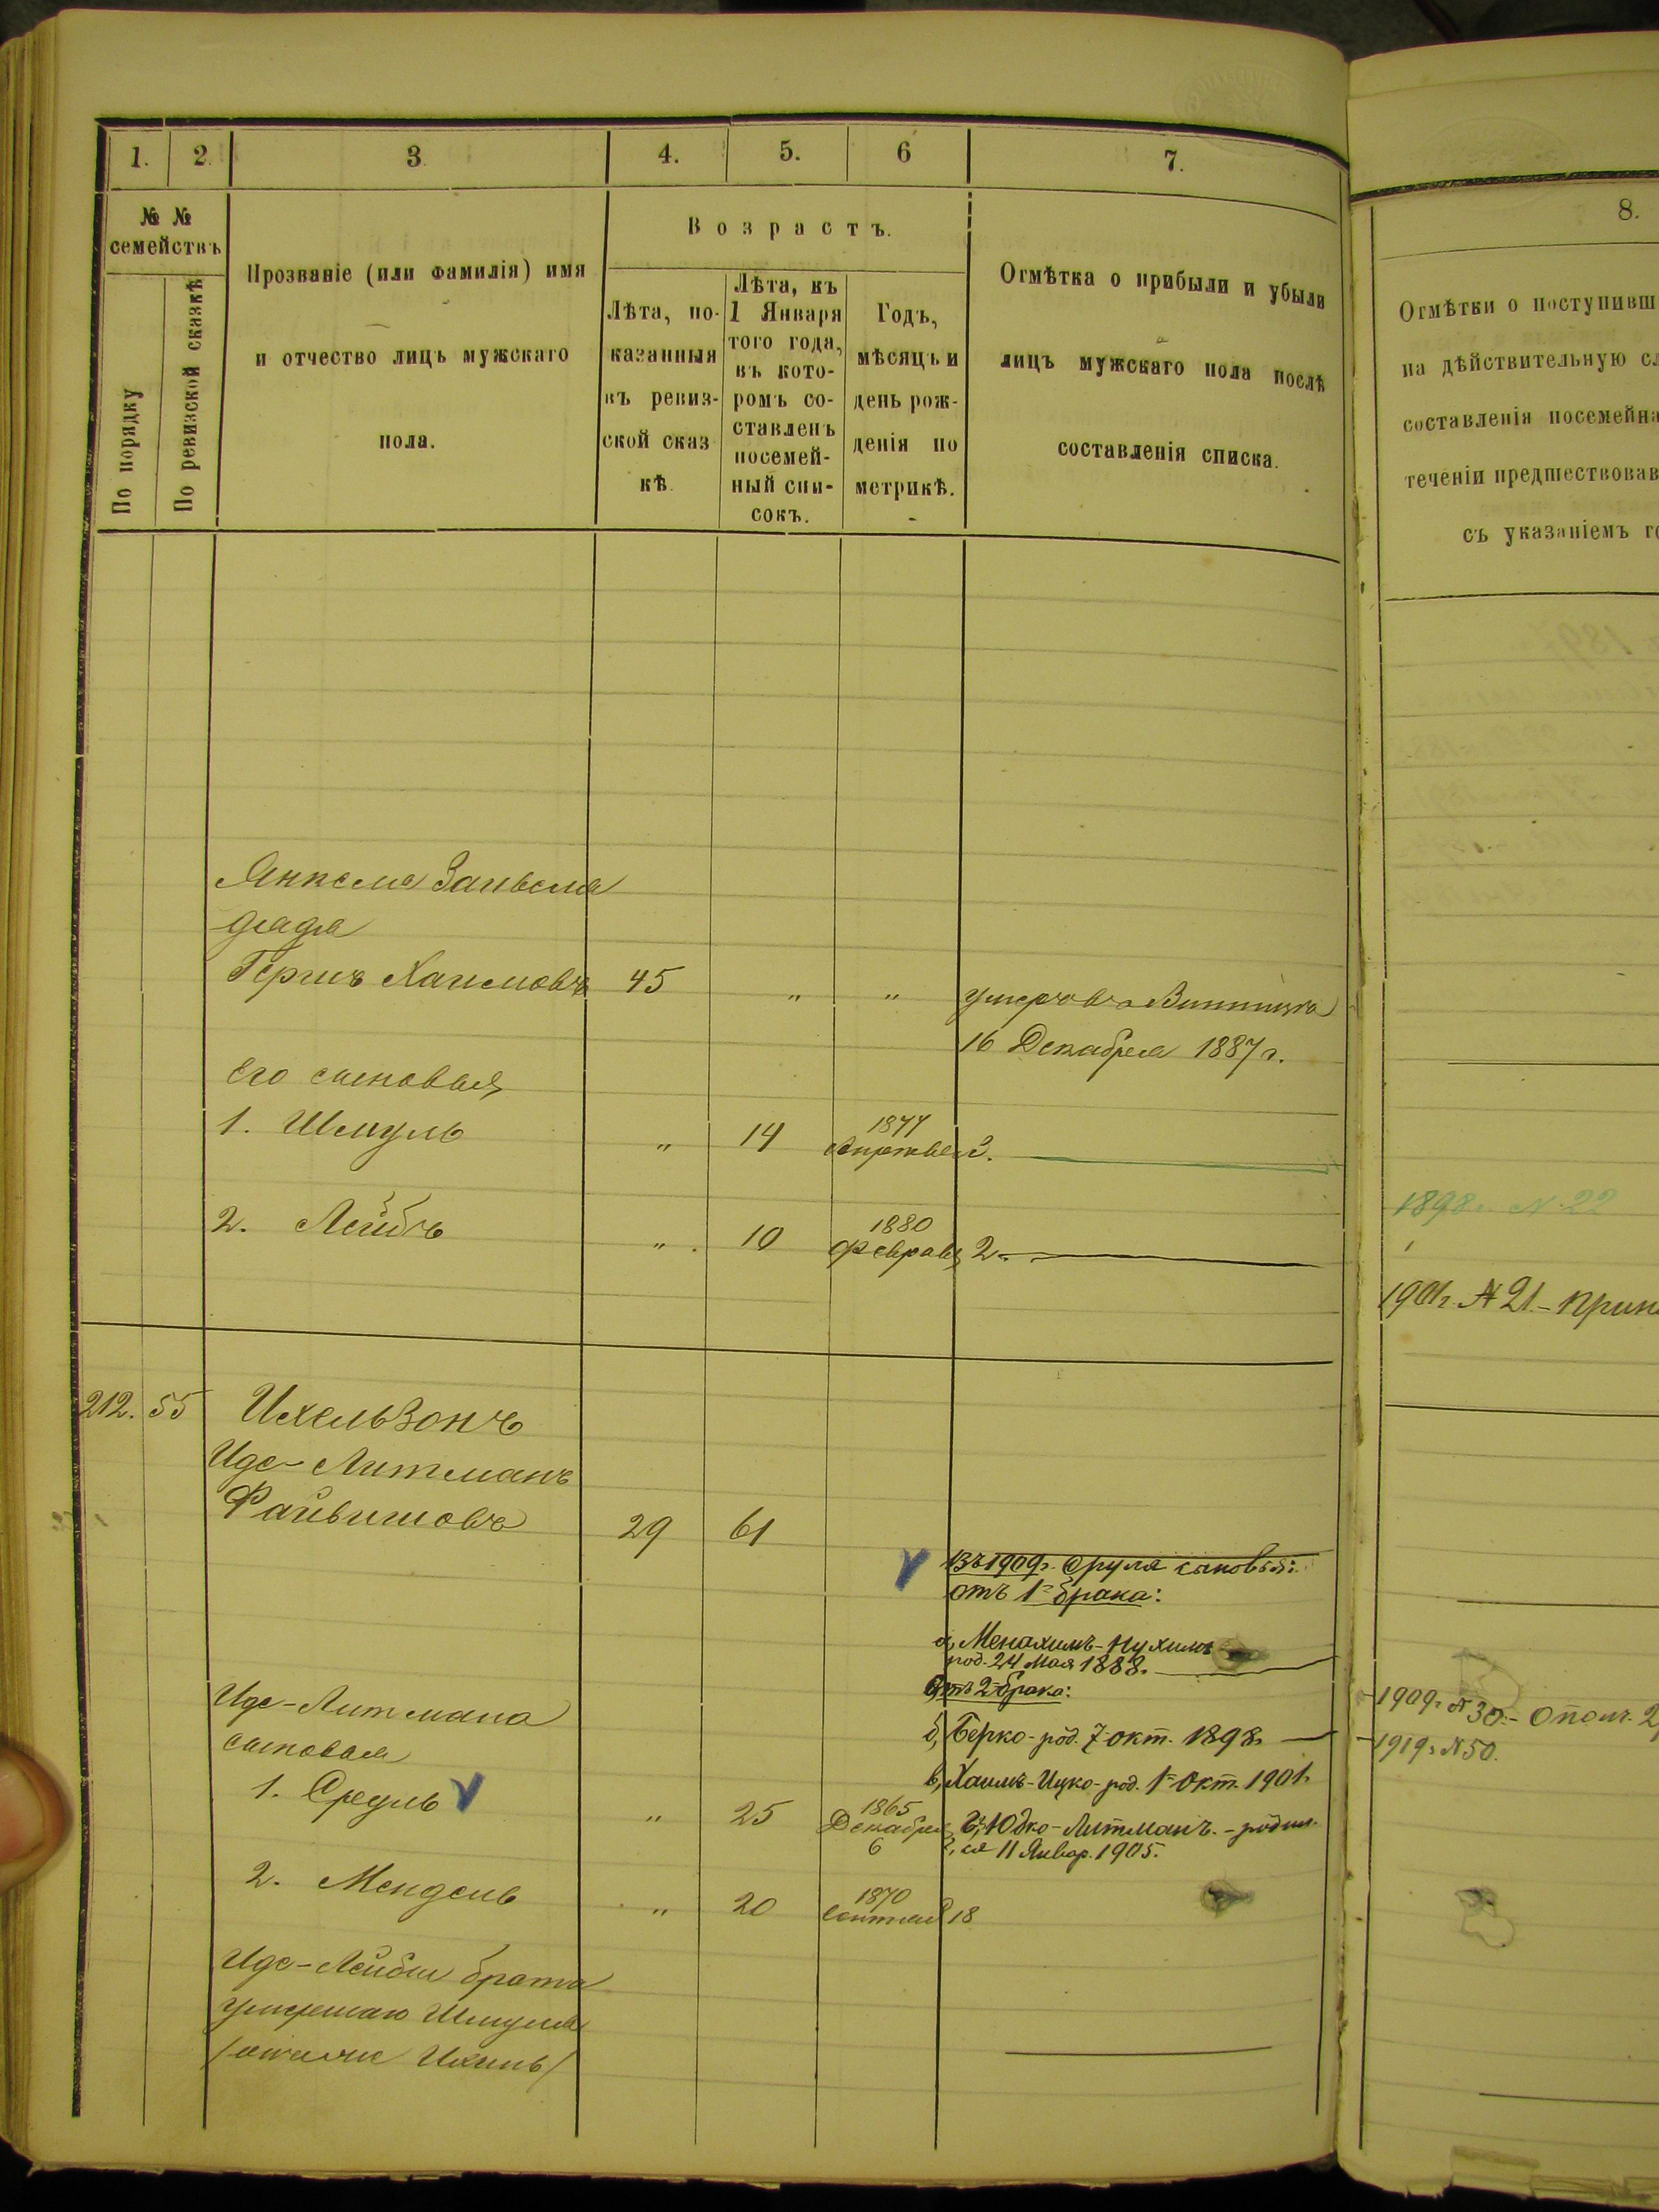 1.
2.
3
4.
5.
6
7.
8.
№ №
семействъ
По порядку
По ревизской сказкѣ
Прозваніе (или фамилія) имя
и отчество лицъ мужскаго
пола.
Возрастъ.
Лѣта, по-
казанныя
въ ревиз-
ской сказ
кѣ.
Лѣта, къ
1 Января
того года,
въ кото-
ромъ со-
ставленъ
посемей-
ный спи-
сокъ.
Годъ,
мѣсяцъ и
день рож-
денія по
метрикѣ.
Отмѣтка о прибыли и убыли
лицъ мужскаго пола послѣ
составленія списка.
Отмѣтки о поступивш
на дѣйствительную сл
составленія посемейна
теченіи предшествовав
съ указаніемъ го
Янкеля Занвеля
дядя
Гершъ Хаимовъ 45 " " умеръ въ Винницѣ
16 Декабря 1887 г.
Его сыновья
1. Шмуль " 14 1877 Апрѣля 3.
1898 г. № 22
2. Лейбъ " 10 1880 Февраля 2.
1901 г. № 21 - Прин
212. 55 Ихельзонъ
Идс-Литманъ
Файвишовъ 29 61
Въ 1909 г. Сруля сыновья:
отъ 1 брака:
а, Менахимъ-Нухимъ
род. 24 Мая 1888.
Отъ 2 брака:
1909 г. № 30 - Ополч. 2
б, Берко - род. 7 окт. 1898.
1919 г. № 50.
в, Хаимъ-Ицко - род. 1 Окт. 1901.
г, Юдко-Литманъ. - родил.
ся 11 Январ. 1905.
Идс-Литмана
сыновья
1. Сруль " 25 1865 Декабря 6
2. Мендель " 20 1870 Сентяб 18
Идс-Лейбы брата
умершаго Шмуля